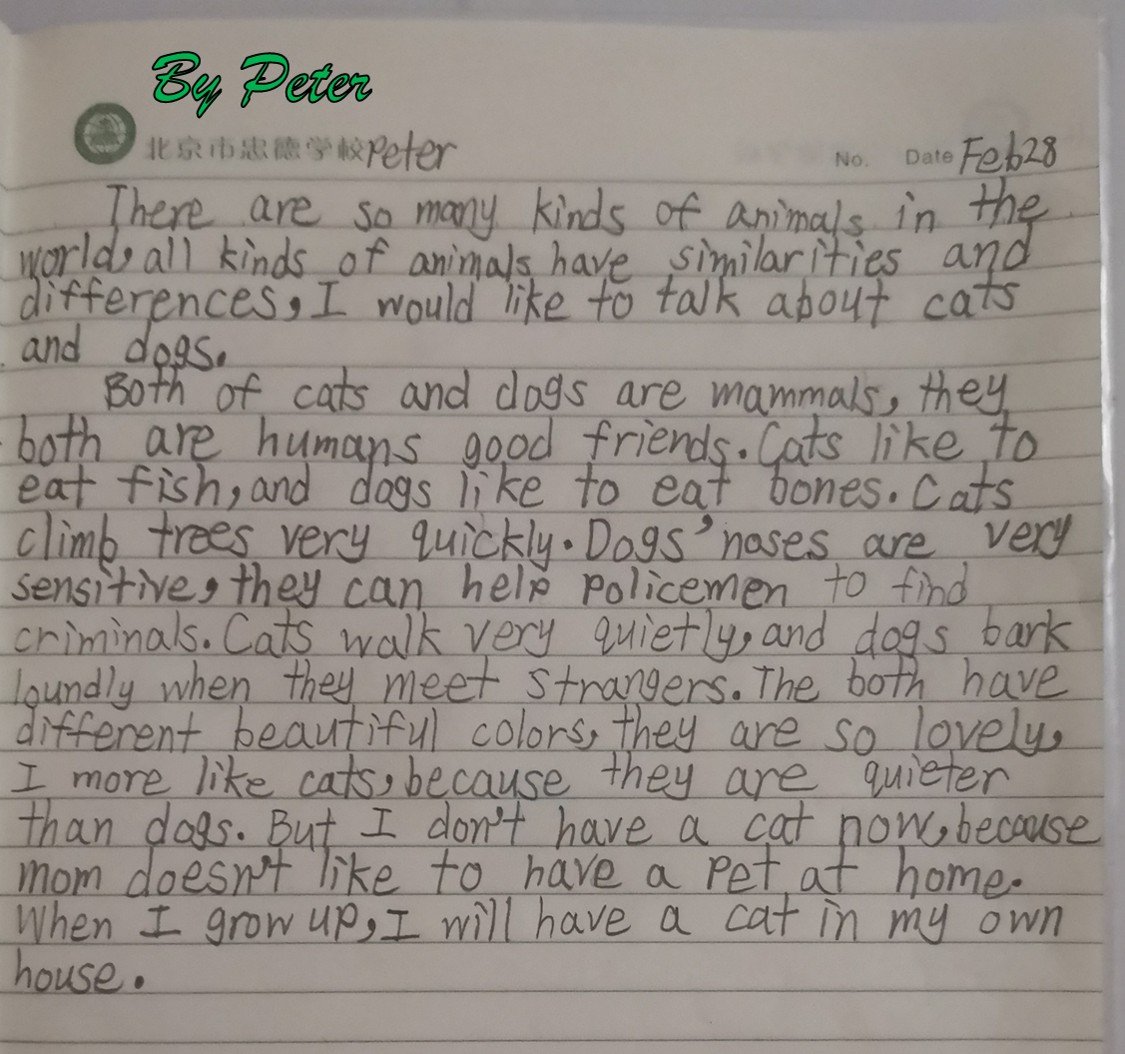 By Peter
北京市忠德学校 Peter No. Date Feb 28
There are so many kinds of animals in the
world, all kinds of animals have similarities and
differences, I would like to talk about cats
and dogs.
Both of cats and dogs are mammals, they
both are humans good friends. Cats like to
eat fish, and dogs like to eat bones. Cats
climb trees very quickly. Dogs' noses are very
sensitive, they can help policemen to find
criminals. Cats walk very quietly, and dogs bark
loundly when they meet strangers. The both have
different beautiful colors, they are so lovely,
I more like cats, because they are quieter
than dogs. But I don't have a cat now, because
mom doesn't like to have a pet at home.
When I grow up, I will have a cat in my own
house.